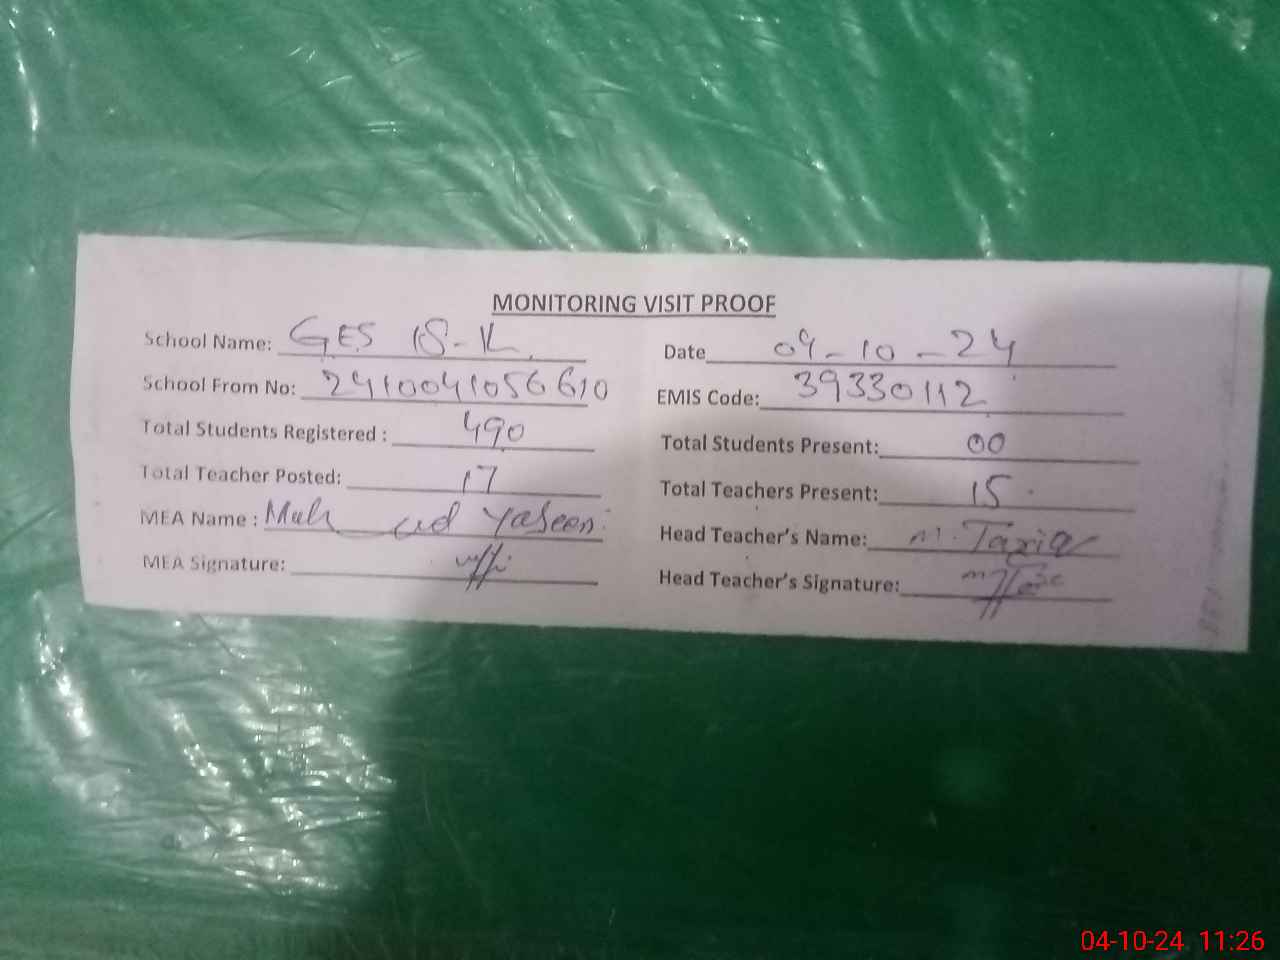 MONITORING VISIT PROOF
School Name: GES 18-1L Date 04-10-24
School From No: 2410041056610 EMIS Code: 39330112
Total Students Registered : 490 Total Students Present: 00
Total Teacher Posted: 17 Total Teachers Present: 15
MEA Name : Muh ad Yaseen Head Teacher's Name: M. Tariq
MEA Signature: Head Teacher's Signature:
04-10-24 11:26